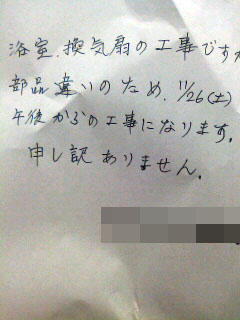 浴室.換気扇の工事ですが
部品違いのため.11/26(土)
午後からの工事になります.
申し訳ありません.